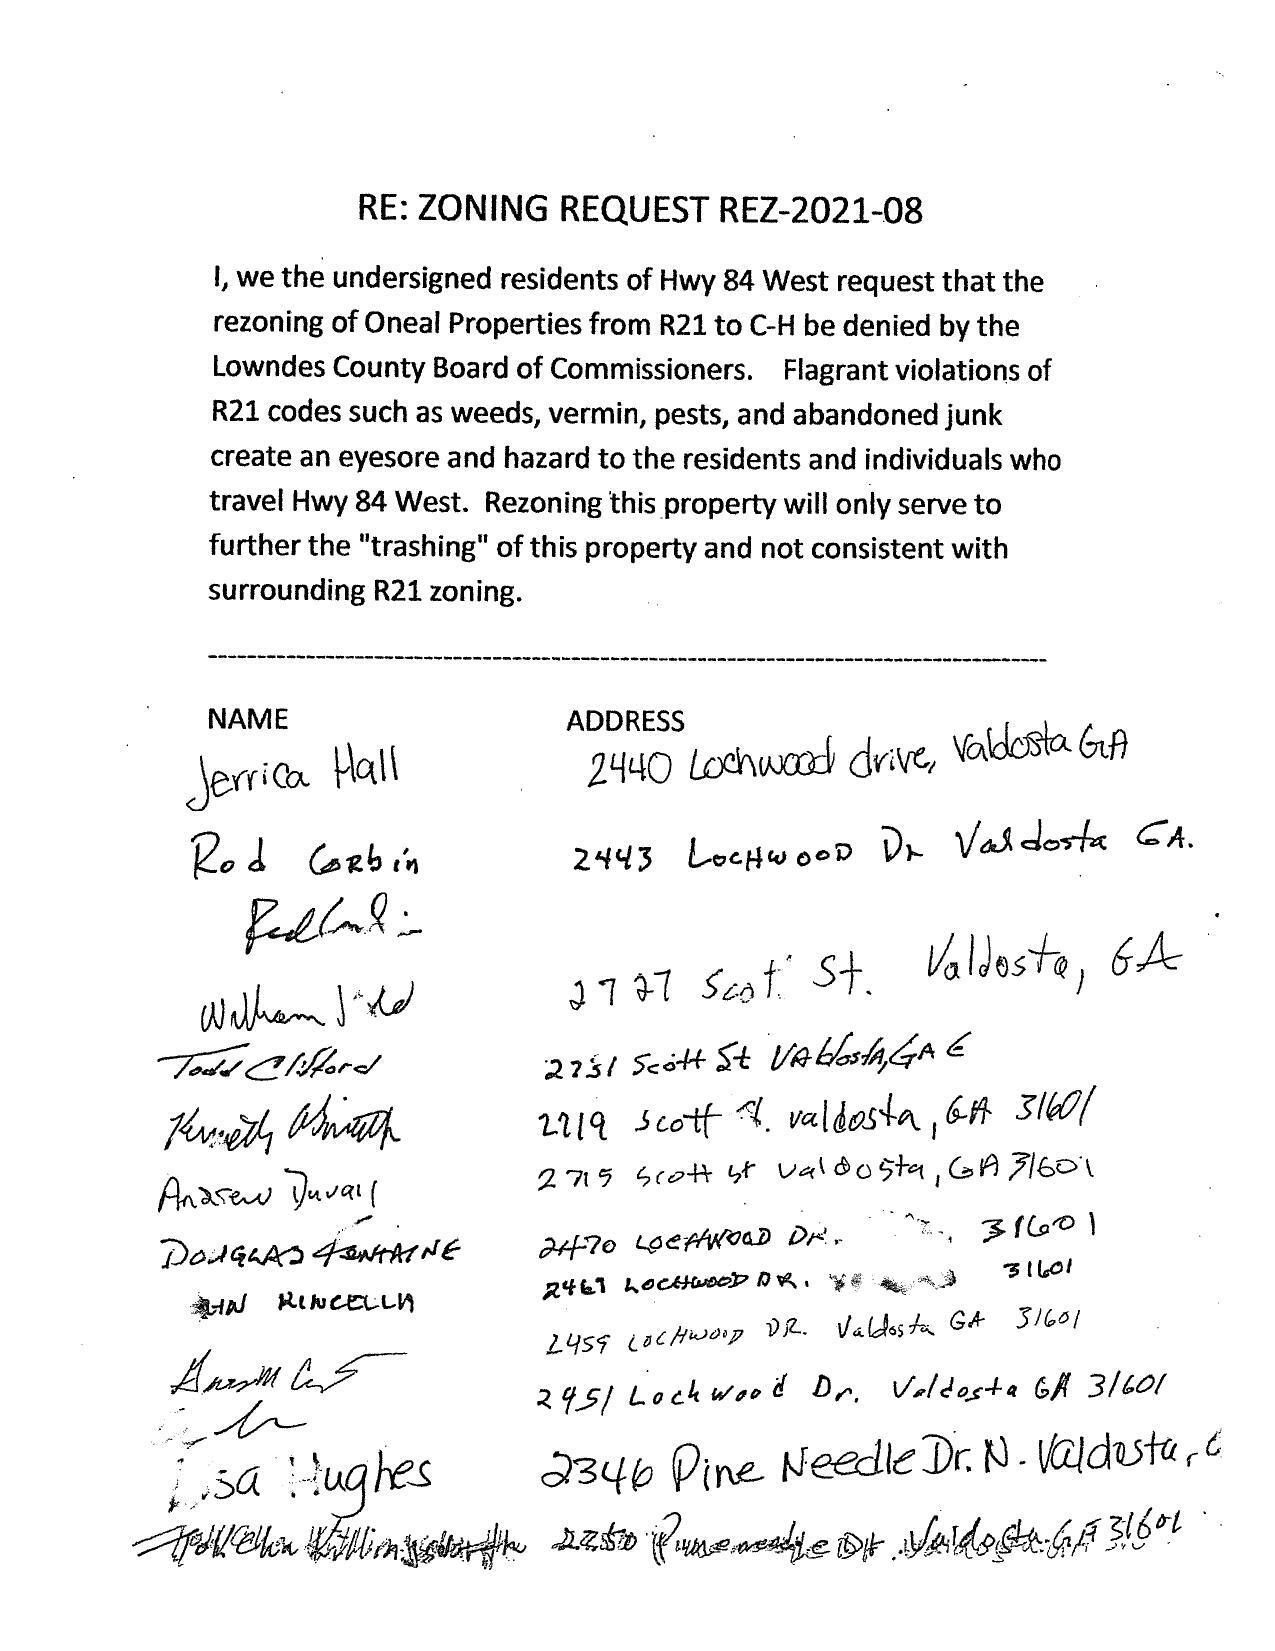 RE: ZONING REQUEST REZ-2021-08
I, we the undersigned residents of Hwy 84 West request that the
rezoning of Oneal Properties from R21 to C-H be denied by the
Lowndes County Board of Commissioners. Flagrant violations of
R21 codes such as weeds, vermin, pests, and abandoned junk
create an eyesore and hazard to the residents and individuals who
travel Hwy 84 West. Rezoning this property will only serve to
further the "trashing" of this property and not consistent with
surrounding R21 zoning.
NAME ADDRESS
Jerrica Hall 2440 Lochwood drive, Valdosta GA
Rod Corbin 2443 LocHwooD Dr Valdosta GA.
William 2727 Scot St. Valdosta, GA
Todd Clifford 2731 Scott St VAldostA, GA
Kenneth 2719 Scott St. valdosta, GA 31601
Andrew Duvall 2715 Scott st valdosta, GA 31601
DOUGLAS FONTAINE 2470 LOCHWOOD DR. 31601
RINCELLA 2467 LOCHWOOD DR. 31601
2459 LOCHWOOD DR. Valdosta GA 31601
2451 Lochwood Dr. Valdosta GA 31601
Lisa Hughes 2346 Pine Needle Dr. N. Valdosta,
Valdosta GA 31601